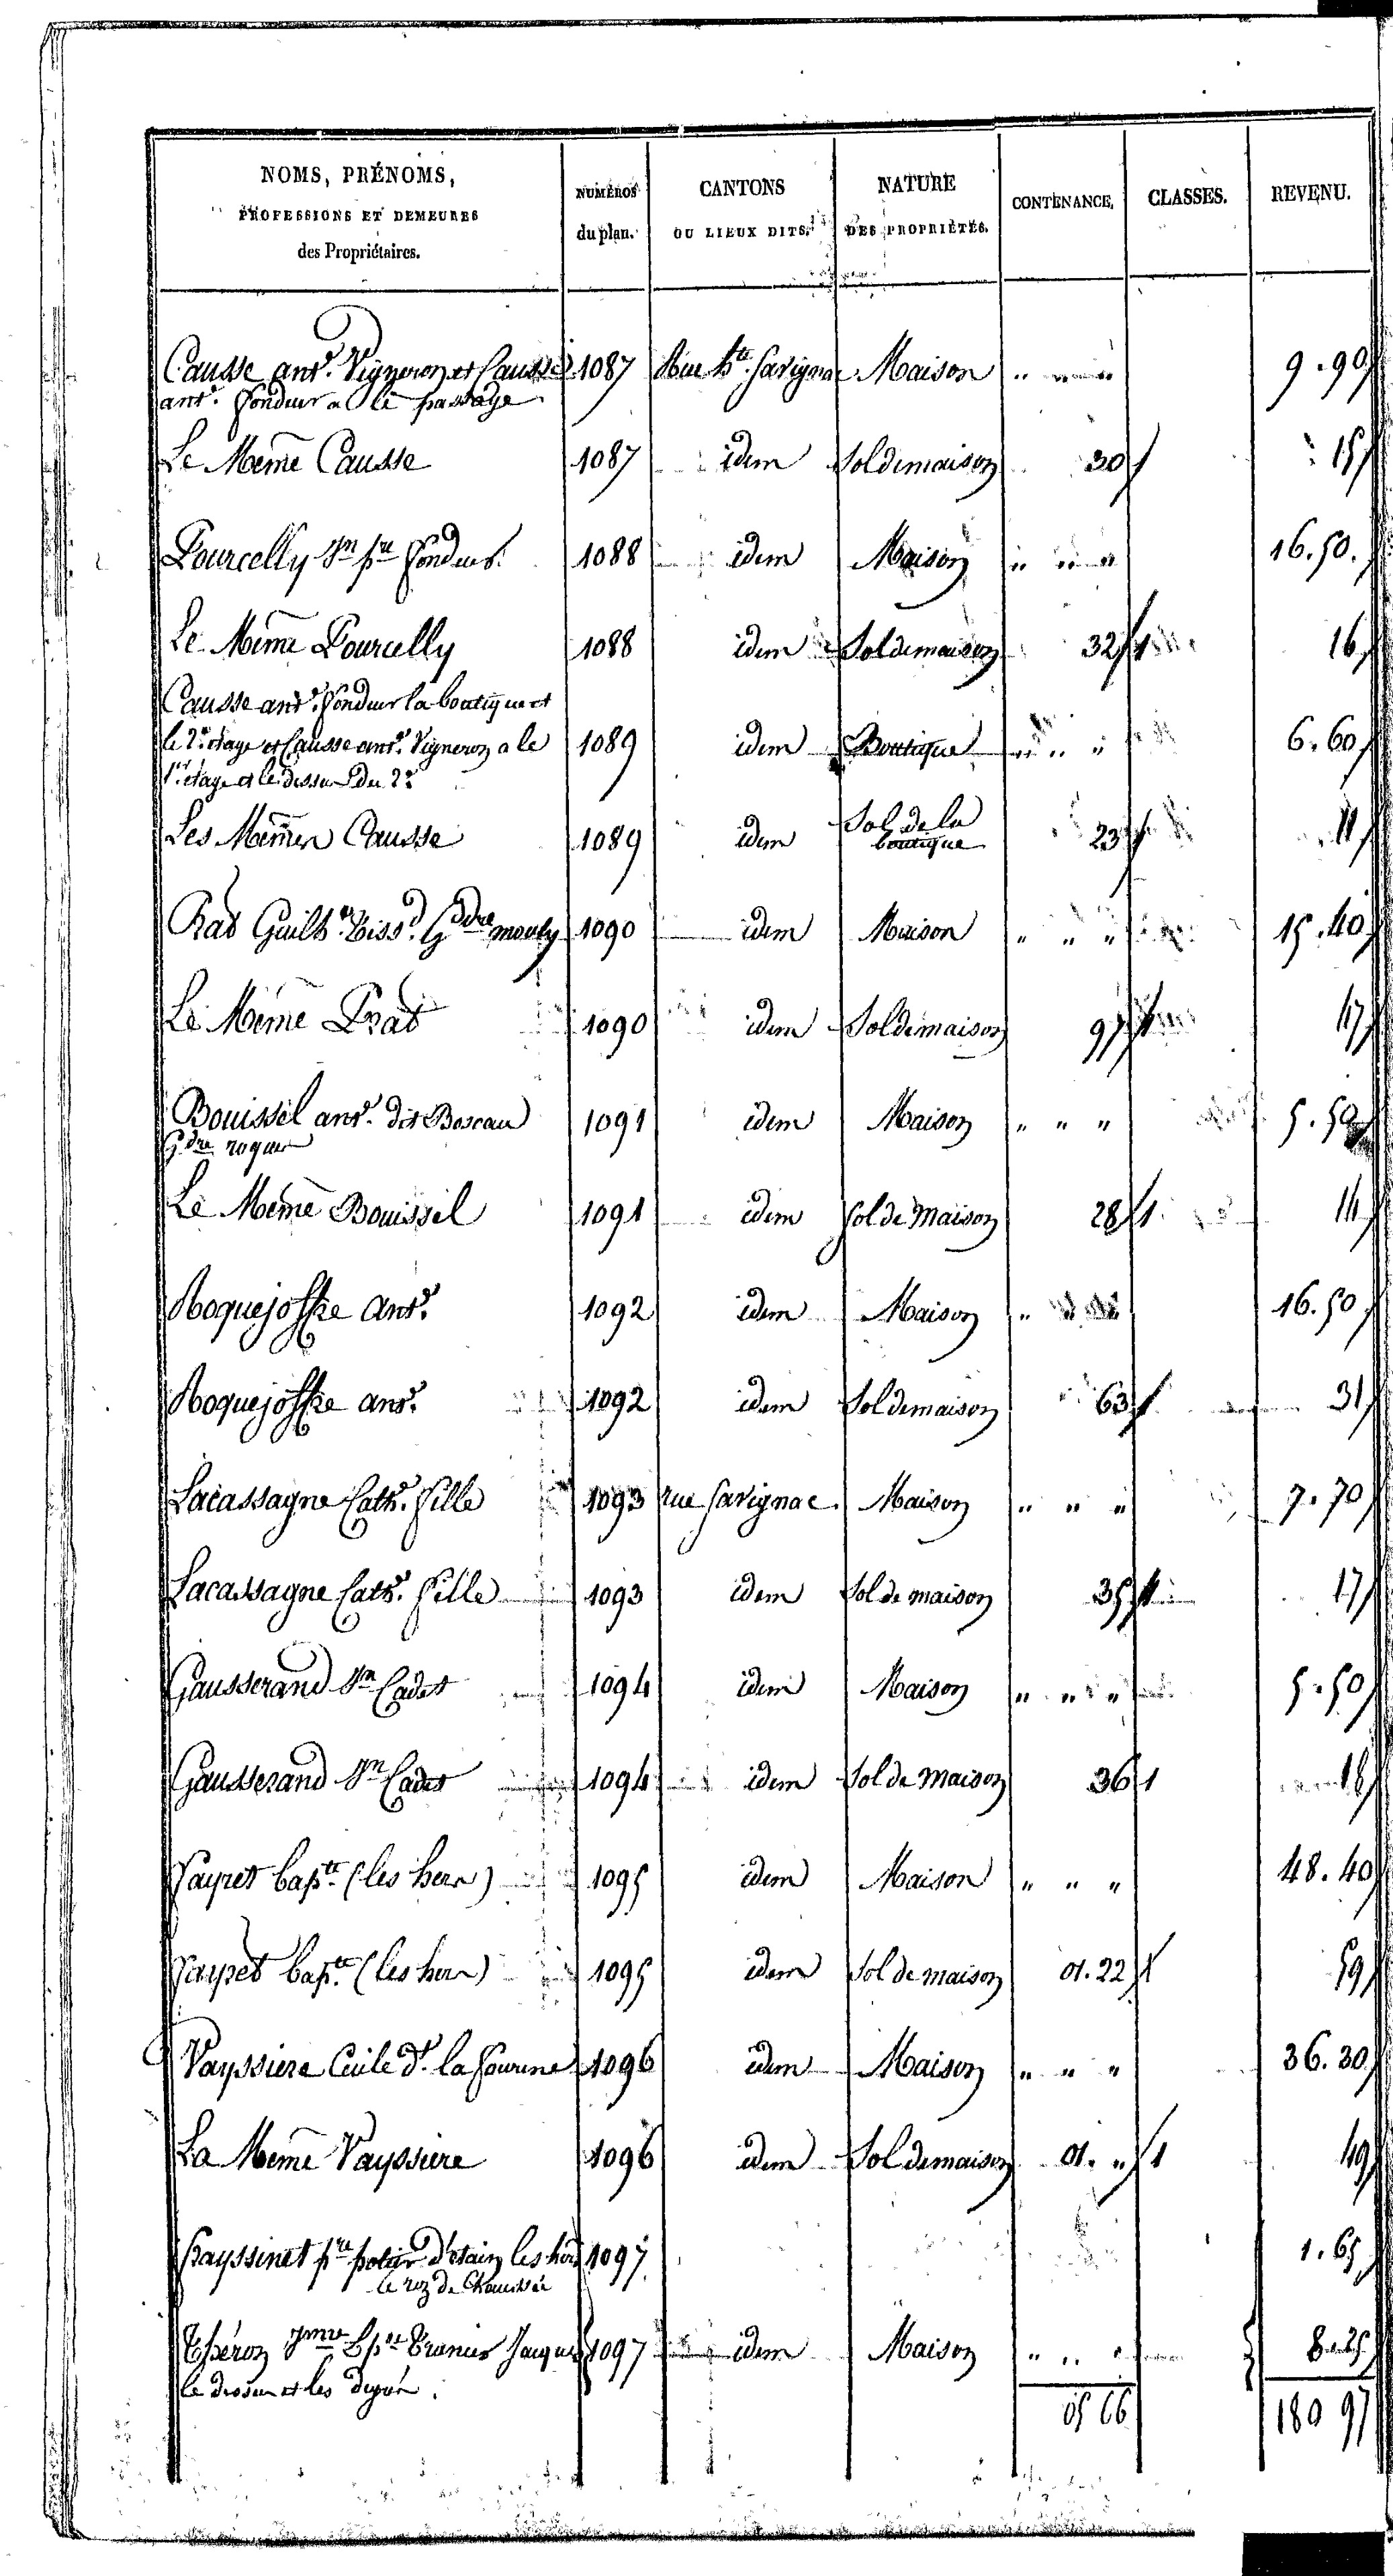 NOMS, PRÉNOMS, PROFESSIONS ET DEMEURES des Propriétaires. | NUMÉROS du plan. | CANTONS OU LIEUX DITS. | NATURE DES PROPRIÉTÉS. | CONTENANCE. | CLASSES. | REVENU.
Causse ant.e Vigneron et Causse 1087 Rue h.te Savignac Maison " " " 9.90
ant.e fondeur a le passage
Le Meme Causse 1087 idem Sol de maison 30 1 15
Pourcelly Jn pre fondeur 1088 idem Maison " " " 16.50.
Le Meme Pourcelly 1088 idem Sol de maison 32 1 16
Causse ant.e fondeur la boutique et
le 2e etage et Causse ant.e Vigneron a le 1089 idem Boutique " " " 6.60
1er etage et le dessus du 2e
Les Memes Causse 1089 idem Sol de la boutique 23 1 11
Prat Guilh.e Tiss.d G.dre mouly 1090 idem Maison " " " 15.40
Le Meme Prat 1090 idem Sol de maison 97 1 47
Bouissel ant.e dit Boscau 1091 idem Maison " " " 5.50
G.dre roquer
Le Meme Bouissel 1091 idem Sol de Maison 28 1 14
Roquejoffre Ant.e 1092 idem Maison " " " 16.50
Roquejoffre ant.e 1092 idem Sol de maison 63 1 31
Lacassagne Cath.e fille 1093 rue Savignac Maison " " " 7.70
Lacassagne Cath.e fille 1093 idem Sol de maison 35 1 17
Gausserand Jn Cadet 1094 idem Maison " " " 5.50
Gausserand Jn Cadet 1094 idem Sol de Maison 36 1 18
Payret bap.te (les hers) 1095 idem Maison " " " 48.40
Payret bap.te (les hers) 1095 idem Sol de maison 01.22 1 59
Vayssiere Cecile d.e la fourine 1096 idem Maison " " " 36.30
La Meme Vayssiere 1096 idem Sol de maison 01. " 1 49
Fayssinet pre potier d'etain les hers 1097 1.65
le rez de Chaussée
Esperon Jme Epse Jacques 1097 idem Maison " " " 8.25
le dessus et les
05 66 180 97